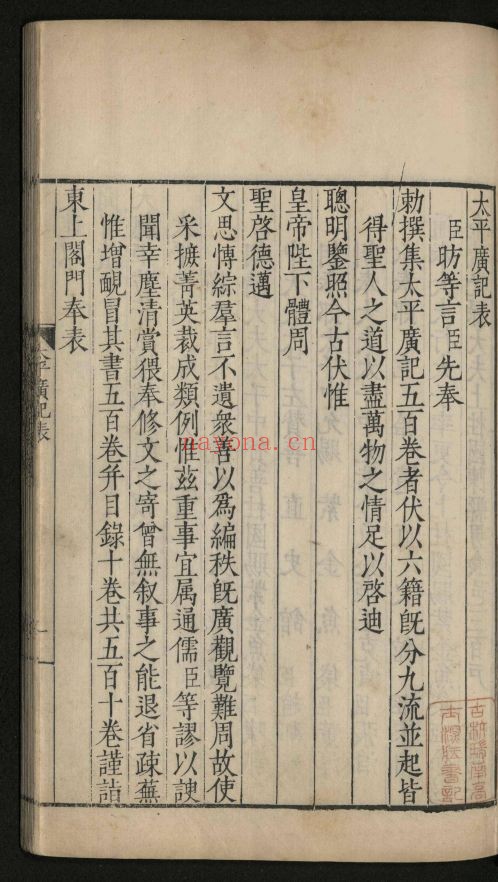 太平廣記表
臣昉等言臣先奉
勅撰集太平廣記五百卷者伏以六籍旣分九流並起皆
得聖人之道以盡萬物之情足以啓迪
聰明鑒照今古伏惟
皇帝陛下體周
聖啓德邁
文思博綜羣言不遺衆善以爲編秩旣廣觀覽難周故使
采摭菁英裁成類例惟兹重事宜属通儒臣等謬以謏
聞幸塵清賞猥奉修文之寄曾無叙事之能退省疎蕪
惟增靦冒其書五百卷幷目錄十卷共五百十卷謹詣
東上閤門奉表
廣記表
一
nayona.cn